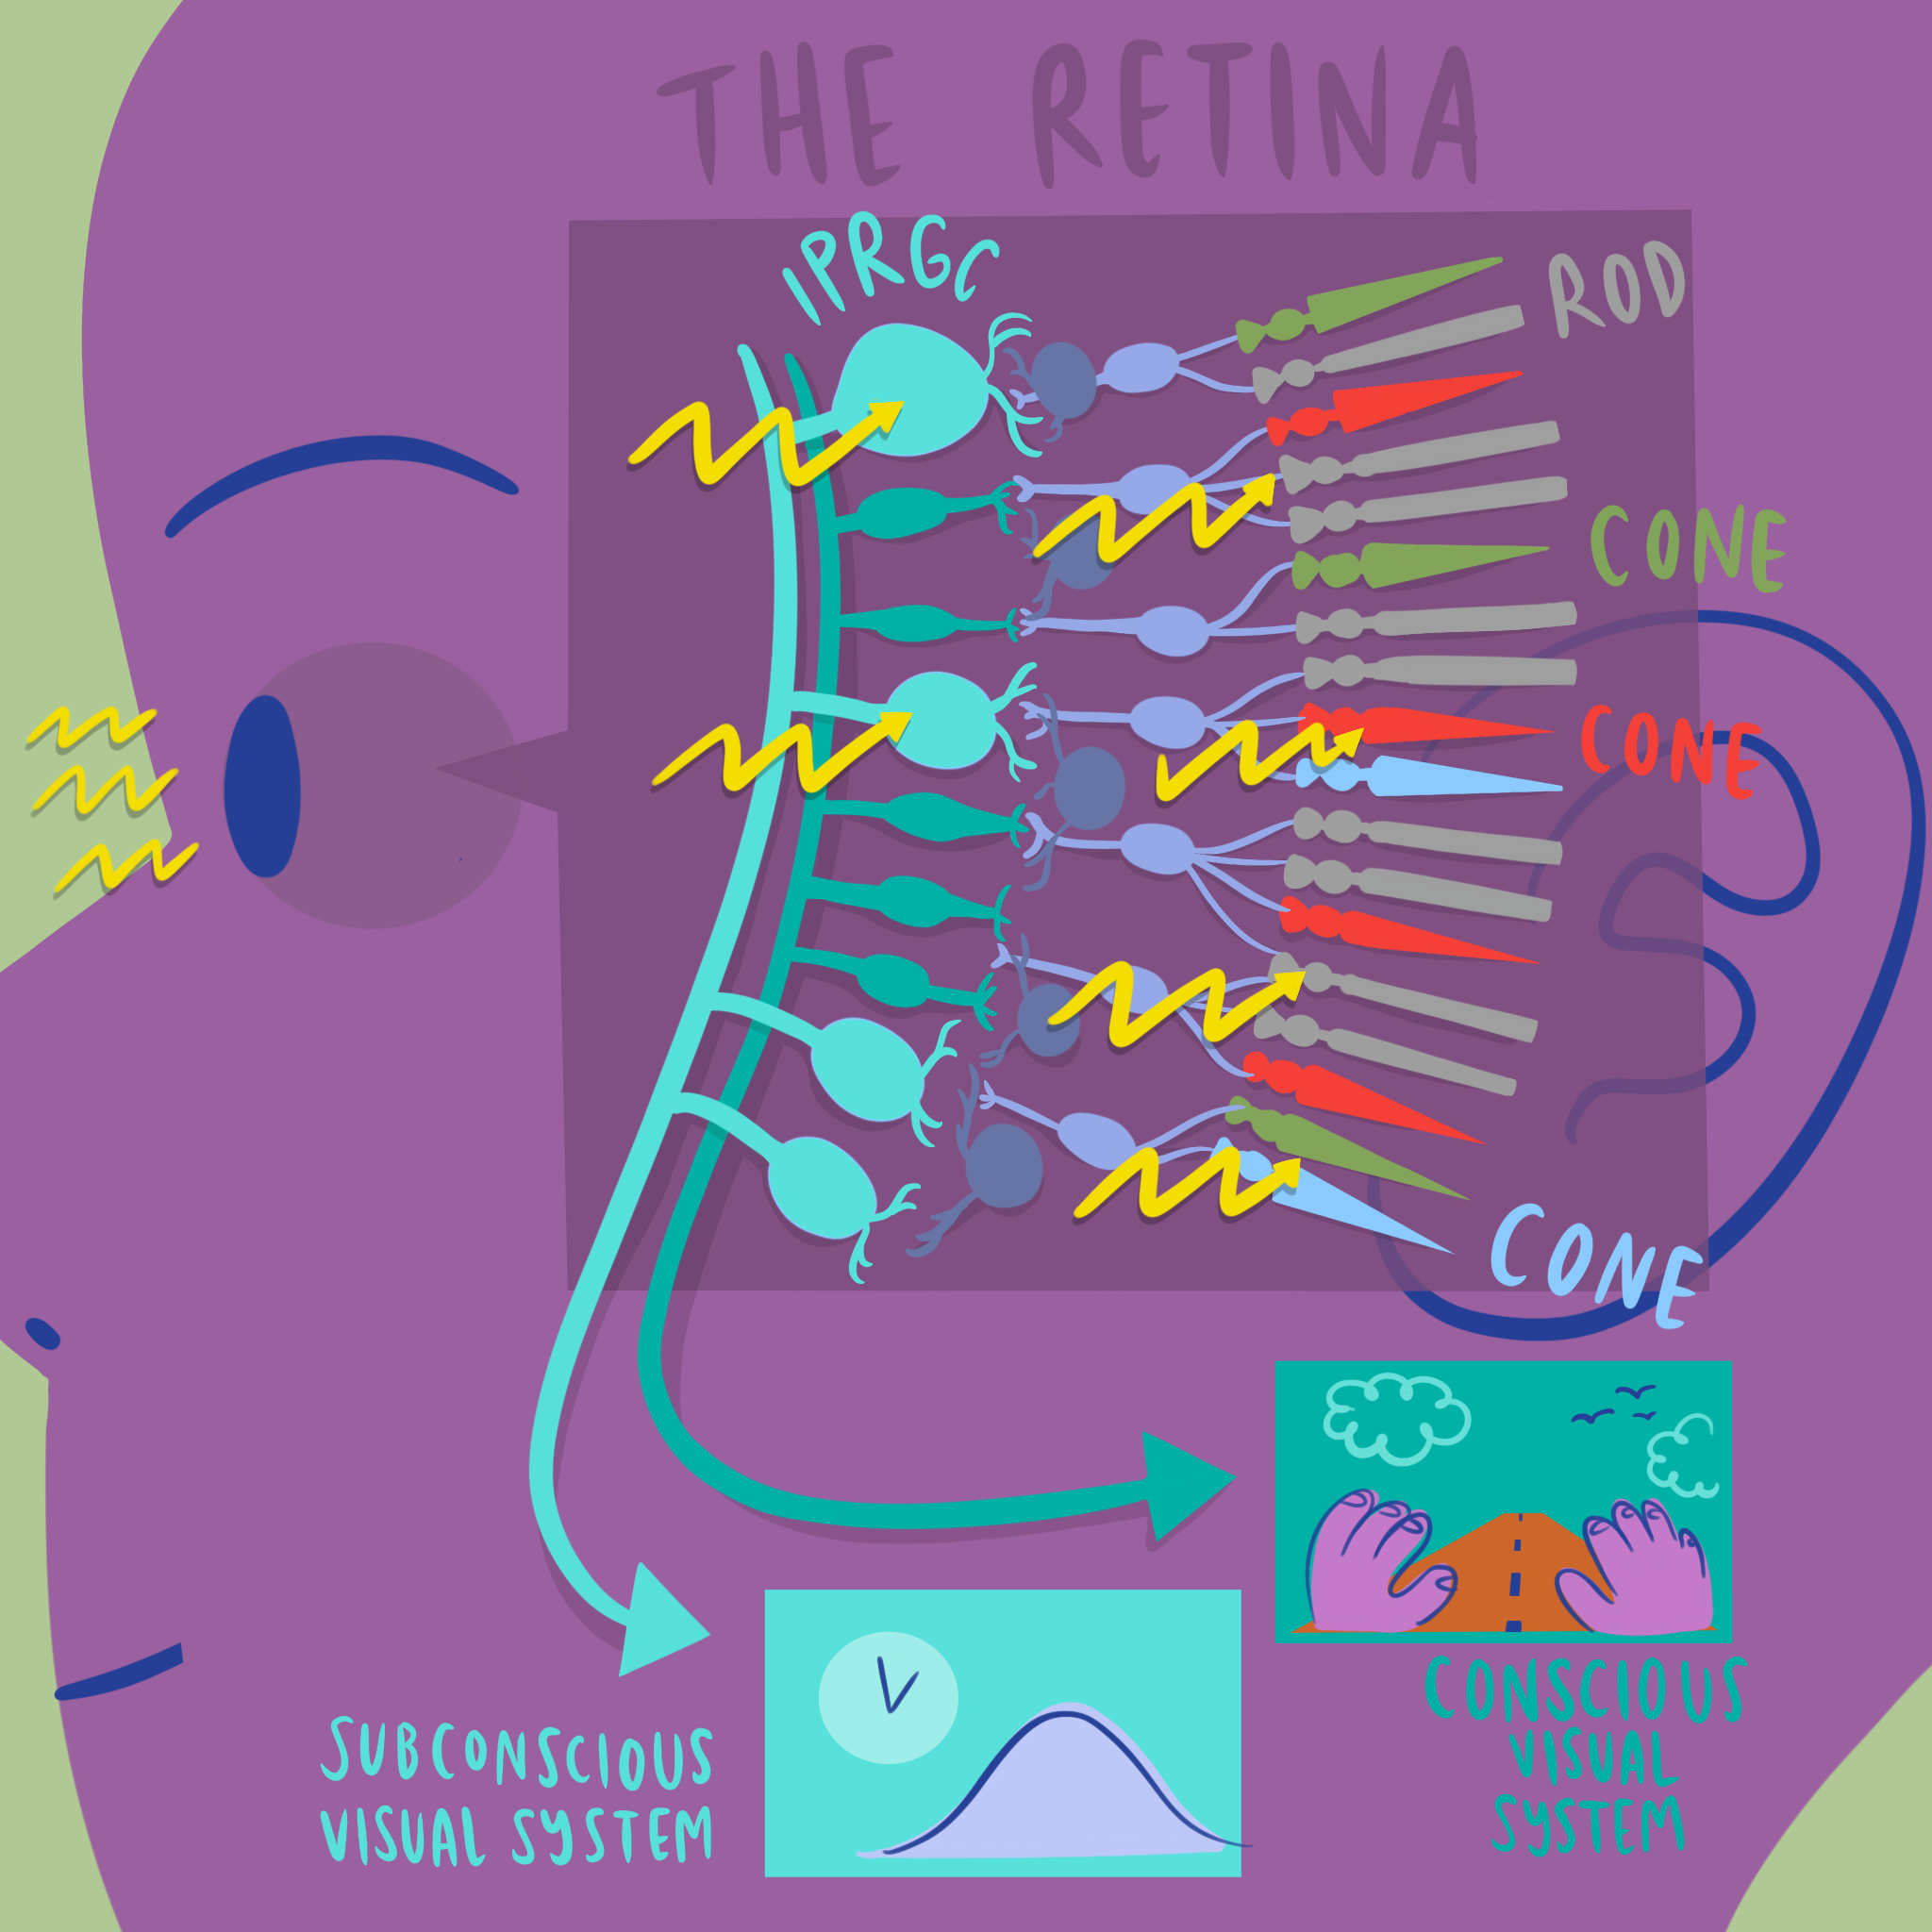 THE RETINA
IPRGC
ROD
CONE
CONE
CONE
CONSCIOUS
VISUAL
SYSTEM
SUBCONSCIOUS
VISUAL SYSTEM